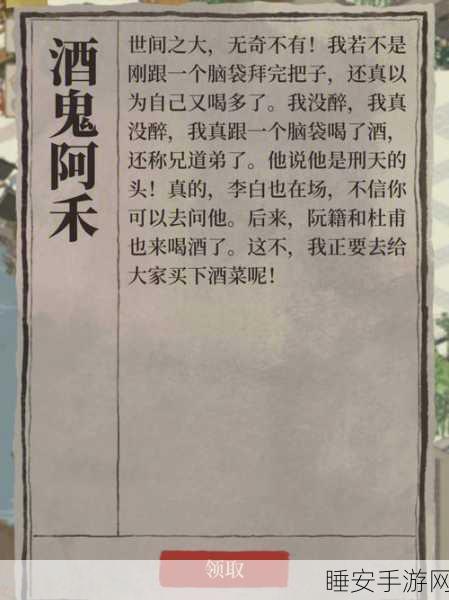 酒鬼阿禾
世间之大，无奇不有！我若不是
刚跟一个脑袋拜完把子，还真以
为自己又喝多了。我没醉，我真
没醉，我真跟一个脑袋喝了酒，
还称兄道弟了。他说他是刑天的
头！真的，李白也在场，不信你
可以去问他。后来，阮籍和杜甫
也来喝酒了。这不，我正要去给
大家买下酒菜呢！
领取
睡安手游网